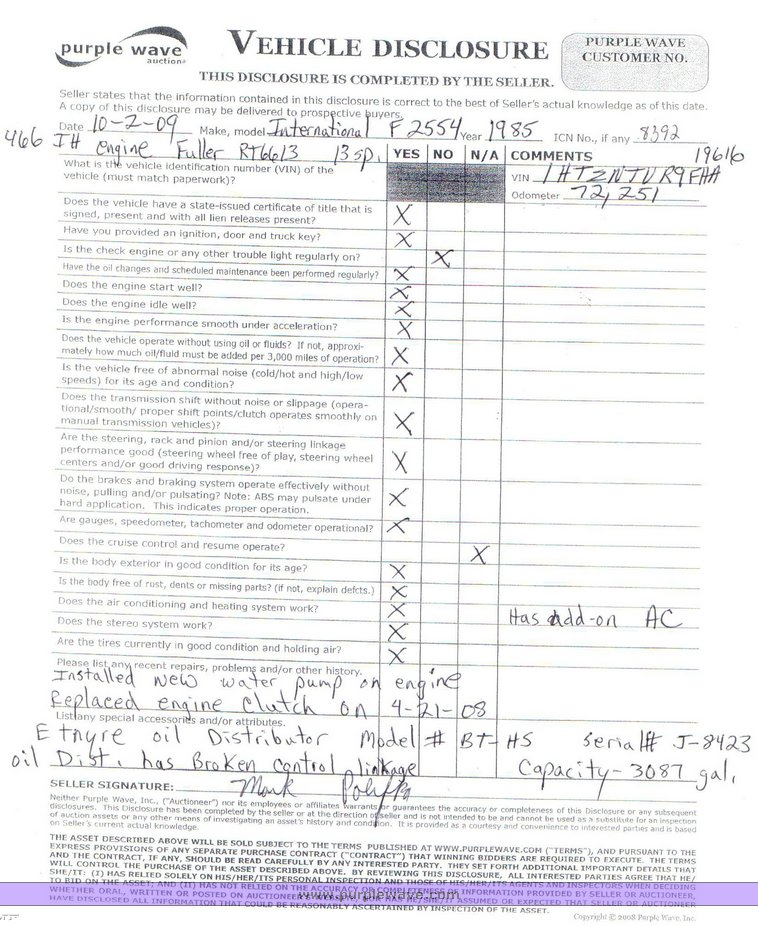 purple wave
auction®
VEHICLE DISCLOSURE
THIS DISCLOSURE IS COMPLETED BY THE SELLER.
PURPLE WAVE
CUSTOMER NO.
Seller states that the information contained in this disclosure is correct to the best of Seller's actual knowledge as of this date.
A copy of this disclosure may be delivered to prospective buyers.
Date 10-2-09 Make, model International F2554 Year 1985 ICN No., if any 8392
466 IH engine Fuller RT6613 13 sp. YES NO N/A COMMENTS 19616
What is the vehicle identification number (VIN) of the
vehicle (must match paperwork)?
VIN 1HTZNTVR9FHA
Odometer 72,251
Does the vehicle have a state-issued certificate of title that is
signed, present and with all lien releases present? X
Have you provided an ignition, door and truck key? X
Is the check engine or any other trouble light regularly on? X
Have the oil changes and scheduled maintenance been performed regularly? X
Does the engine start well? X
Does the engine idle well? X
Is the engine performance smooth under acceleration? X
Does the vehicle operate without using oil or fluids? If not, approxi-
mately how much oil/fluid must be added per 3,000 miles of operation? X
Is the vehicle free of abnormal noise (cold/hot and high/low
speeds) for its age and condition? X
Does the transmission shift without noise or slippage (opera-
tional/smooth/ proper shift points/clutch operates smoothly on
manual transmission vehicles)? X
Are the steering, rack and pinion and/or steering linkage
performance good (steering wheel free of play, steering wheel
centers and/or good driving response)? X
Do the brakes and braking system operate effectively without
noise, pulling and/or pulsating? Note: ABS may pulsate under
hard application. This indicates proper operation. X
Are gauges, speedometer, tachometer and odometer operational? X
Does the cruise control and resume operate? X
Is the body exterior in good condition for its age? X
Is the body free of rust, dents or missing parts? (if not, explain defcts.) X
Does the air conditioning and heating system work? X Has add-on AC
Does the stereo system work? X
Are the tires currently in good condition and holding air? X
Please list any recent repairs, problems and/or other history.
Installed New water pump on engine
Replaced engine Clutch on 4-21-08
List any special accessories and/or attributes.
Etnyre oil Distributor Model # BT-HS Serial# J-8423
oil Dist. has Broken Control linkage Capacity-3087 gal.
SELLER SIGNATURE: Mark
Neither Purple Wave, Inc., ("Auctioneer") nor its employees or affiliates warrants or guarantees the accuracy or completeness of this Disclosure or any subsequent
disclosures. This Disclosure has been completed by the seller or at the direction of seller and is not intended to be and cannot be used as a substitute for an inspection
of auction assets or any other means of investigating an asset's history and condition. It is provided as a courtesy and convenience to interested parties and is based
on Seller's current actual knowledge.
THE ASSET DESCRIBED ABOVE WILL BE SOLD SUBJECT TO THE TERMS PUBLISHED AT WWW.PURPLEWAVE.COM ("TERMS"), AND PURSUANT TO THE
EXPRESS PROVISIONS OF ANY SEPARATE PURCHASE CONTRACT ("CONTRACT") THAT WINNING BIDDERS ARE REQUIRED TO EXECUTE. THE TERMS
AND THE CONTRACT, IF ANY, SHOULD BE READ CAREFULLY BY ANY INTERESTED PARTY. THEY SET FORTH ADDITIONAL IMPORTANT DETAILS THAT
WILL CONTROL THE PURCHASE OF THE ASSET DESCRIBED ABOVE. BY REVIEWING THIS DISCLOSURE, ALL INTERESTED PARTIES AGREE THAT HE/
SHE/IT: (I) HAS RELIED SOLELY ON HIS/HER/ITS PERSONAL INSPECTION AND THOSE OF HIS/HER/ITS AGENTS AND INSPECTORS WHEN DECIDING
TO BID ON THE ASSET; AND (II) HAS NOT RELIED ON THE ACCURACY OR COMPLETENESS OF INFORMATION PROVIDED BY SELLER OR AUCTIONEER,
WHETHER ORAL, WRITTEN OR POSTED ON AUCTIONEER'S HE/SHE/IT ASSUMED OR EXPECTED THAT SELLER OR AUCTIONEER
HAVE DISCLOSED ALL INFORMATION THAT COULD BE REASONABLY ASCERTAINED BY INSPECTION OF THE ASSET.
www.purplewave.com
Copyright © 2008 Purple Wave, Inc.